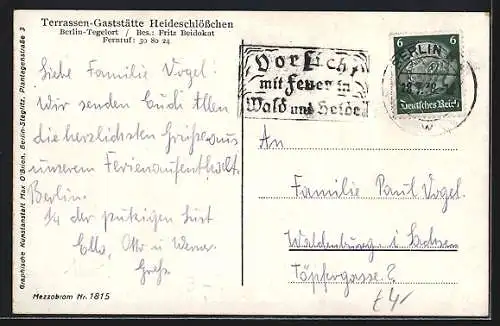 Terrassen-Gaststätte Heideschlößchen
Berlin-Tegelort / Bes.: Fritz Beidokat
Fernruf: 30 80 24
Vorsicht
mit Feuer in
Wald und Heide!
BERLIN
6
Deutsches Reich
Liebe Familie Vogel!
Wir senden Euch Allen
die herzlichsten Grüße aus
unserem Ferienaufenthalt.
Berlin.
Ella, Otto u. Werner
An
Familie Paul Vogel.
Waldenburg i. Sachsen
Töpfergasse 2
Graphische Kunstanstalt Max O'Brien, Berlin-Steglitz, Plantagenstraße 3
Mezzobrom Nr. 1815